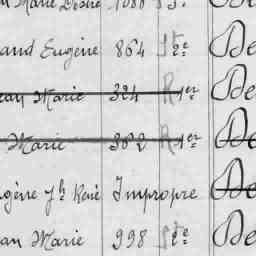 Marie Désiré 1088
and Eugène 864 St 2e De
ean Marie 324 R 1er De
Marie 362 R 1er De
gène Jh René Impropre De
an Marie 998 St 2e De